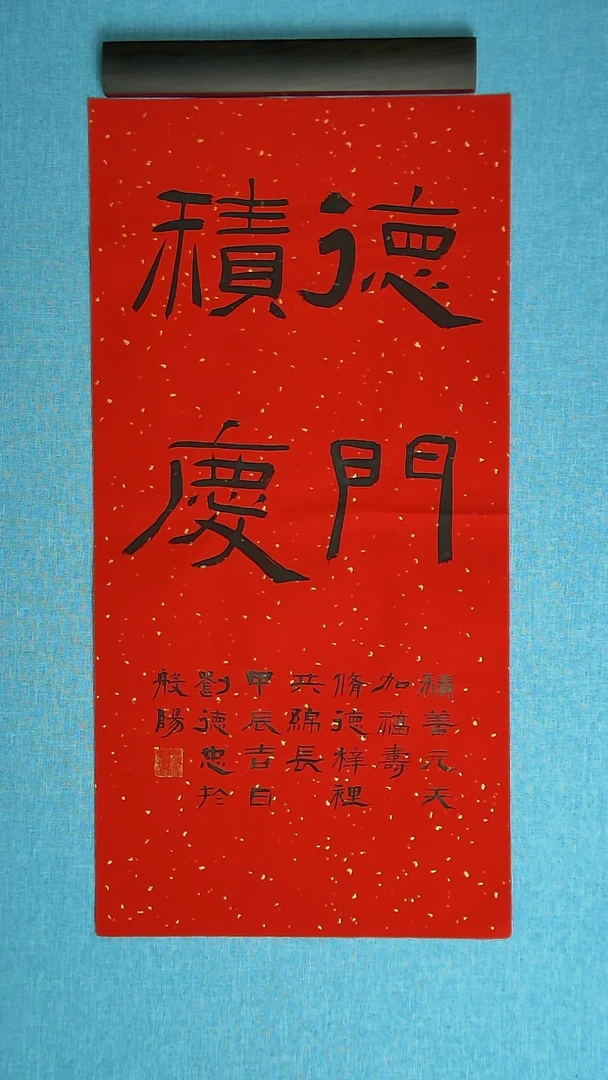 德門
積慶
積善元天
加福壽
脩德梓裡
共綿長
甲辰吉日
劉德忠於
般陽